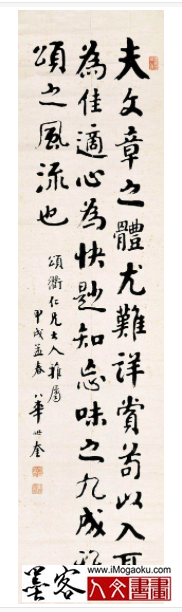 夫文章之體尤難詳賞苟以入耳
為佳適心為快尟知忘味之九成雅
頌之風流也
頌衢仁兄大人雅屬
甲戌孟春 華世奎
www.iMogaoku.com
墨客
人文書畫